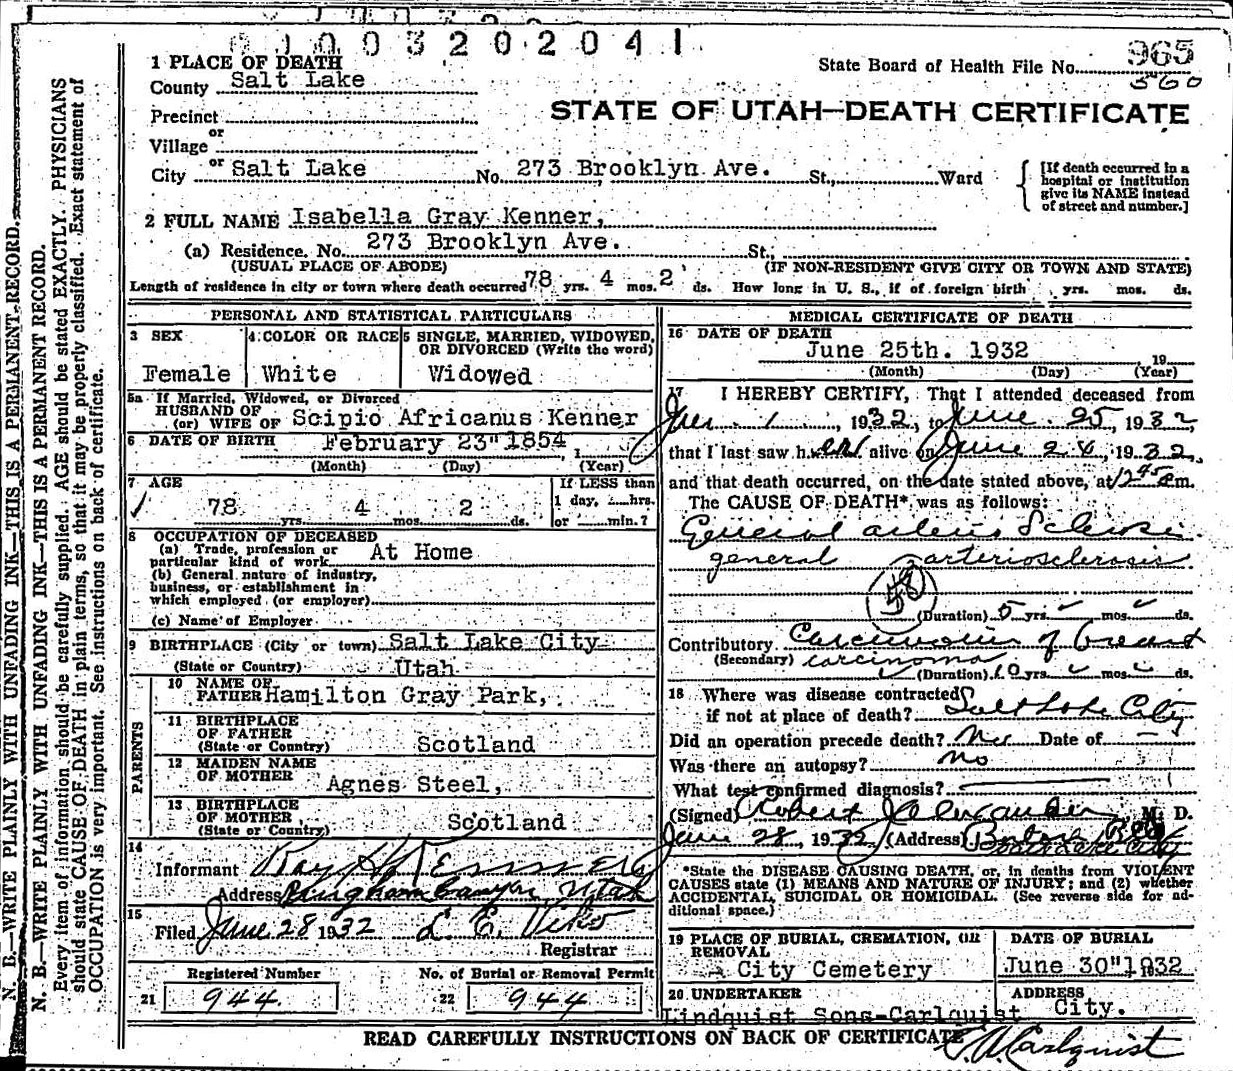 0 1 0 0 3 2 0 2 0 4 1
1 PLACE OF DEATH
State Board of Health File No. 965
560
County Salt Lake
STATE OF UTAH—DEATH CERTIFICATE
Precinct
or
Village
or
City Salt Lake No. 273 Brooklyn Ave. St., Ward
[If death occurred in a
hospital or institution
give its NAME instead
of street and number.]
2 FULL NAME Isabella Gray Kenner,
(a) Residence. No. 273 Brooklyn Ave. St.,
(USUAL PLACE OF ABODE) (IF NON-RESIDENT GIVE CITY OR TOWN AND STATE)
Length of residence in city or town where death occurred 78 yrs. 4 mos. 2 ds. How long in U. S., if of foreign birth yrs. mos. ds.
PERSONAL AND STATISTICAL PARTICULARS
3 SEX
Female
4 COLOR OR RACE
White
5 SINGLE, MARRIED, WIDOWED,
OR DIVORCED (Write the word)
Widowed
5a If Married, Widowed, or Divorced
HUSBAND OF
(or) WIFE OF Scipio Africanus Kenner
6 DATE OF BIRTH February 23" 1854, 1
(Month) (Day) (Year)
7 AGE
78 yrs. 4 mos. 2 ds.
If LESS than
1 day, hrs.
or min.?
8 OCCUPATION OF DECEASED
(a) Trade, profession or
particular kind of work At Home
(b) General nature of industry,
business, or establishment in
which employed (or employer)
(c) Name of Employer
9 BIRTHPLACE (City or town) Salt Lake City
(State or Country) Utah
PARENTS
10 NAME OF
FATHER Hamilton Gray Park,
11 BIRTHPLACE
OF FATHER
(State or Country) Scotland
12 MAIDEN NAME
OF MOTHER Agnes Steel,
13 BIRTHPLACE
OF MOTHER
(State or Country) Scotland
14
Informant Ray H Kenner
Address Bingham Canyon, Utah
15
Filed June 28 1932 L E. Viko
Registrar
Registered Number No. of Burial or Removal Permit
21 944 22 944
MEDICAL CERTIFICATE OF DEATH
16 DATE OF DEATH
June 25th. 1932 19
(Month) (Day) (Year)
17 I HEREBY CERTIFY, That I attended deceased from
1, 1932, to June 25, 1932,
that I last saw her alive on June 24, 1932,
and that death occurred, on the date stated above, at 12 45 m.
The CAUSE OF DEATH*, was as follows:
General arterio Sclerosis
general arteriosclerosis
(Duration) 5 yrs. mos. ds.
Contributory Carcinoma of breast
(Secondary) carcinoma
(Duration) 10 yrs. mos. ds.
18 Where was disease contracted
if not at place of death? Salt Lake City
Did an operation precede death? No Date of
Was there an autopsy? No
What test confirmed diagnosis?
(Signed) Robert J Alexander, M. D.
June 28, 1932 (Address) Boston Bldg
Salt Lake City
*State the DISEASE CAUSING DEATH, or, in deaths from VIOLENT
CAUSES state (1) MEANS AND NATURE OF INJURY; and (2) whether
ACCIDENTAL, SUICIDAL OR HOMICIDAL. (See reverse side for ad-
ditional space.)
19 PLACE OF BURIAL, CREMATION, OR
REMOVAL
City Cemetery
DATE OF BURIAL
June 30" 1932
20 UNDERTAKER
Lindquist Sons-Carlquist
ADDRESS
City.
READ CAREFULLY INSTRUCTIONS ON BACK OF CERTIFICATE
Carlquist
N. B.—WRITE PLAINLY WITH UNFADING INK—THIS IS A PERMANENT RECORD.
N. B.—WRITE PLAINLY WITH UNFADING INK—THIS IS A PERMANENT RECORD.
Every item of information should be carefully supplied. AGE should be stated EXACTLY. PHYSICIANS
should state CAUSE OF DEATH in plain terms, so that it may be properly classified. Exact statement of
OCCUPATION is very important. See instructions on back of certificate.